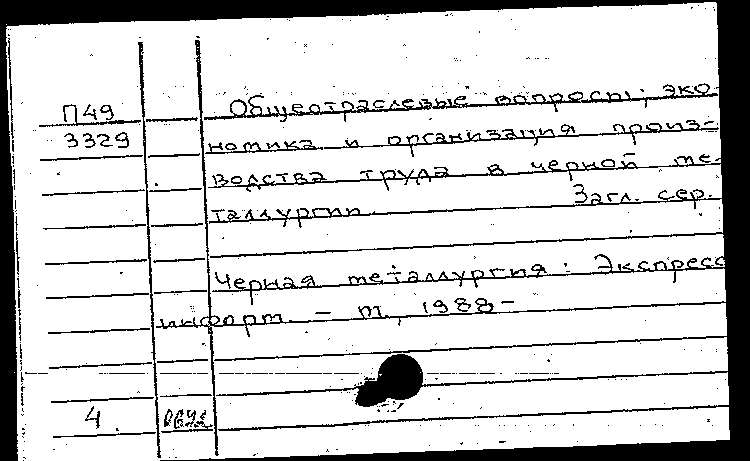 П49 Общеотраслевые вопросы; эко-
3329 номика и организация произ-
водства труда в черной ме-
таллургии. Загл. сер.
Черная металлургия: Экспресс
информ. – М., 1988–
4